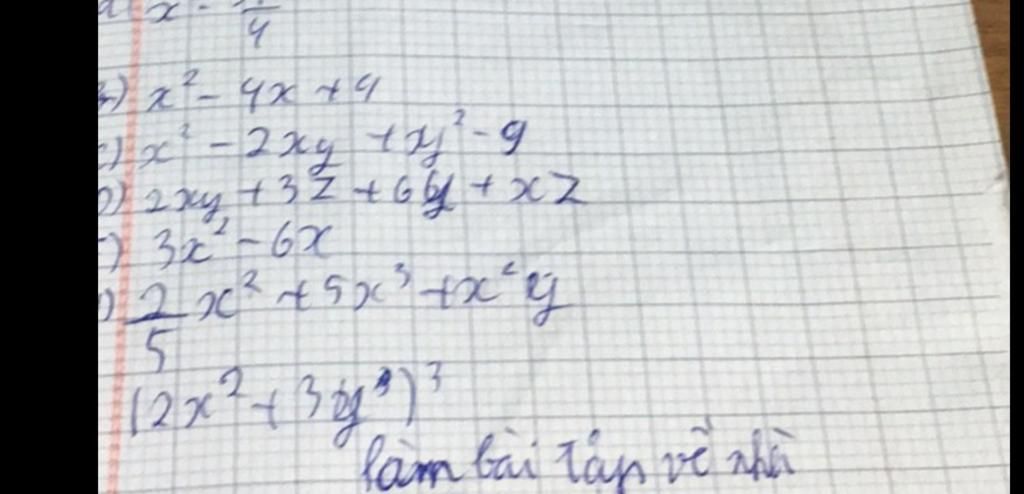 x² - 4x + 4
c) x² - 2xy + y² - 9
D) 2xy + 3z + 6y + xz
) 3x² - 6x
) 2/5 x² + 5x³ + x²y
(2x² + 3y³)³
làm bài tập về nhà